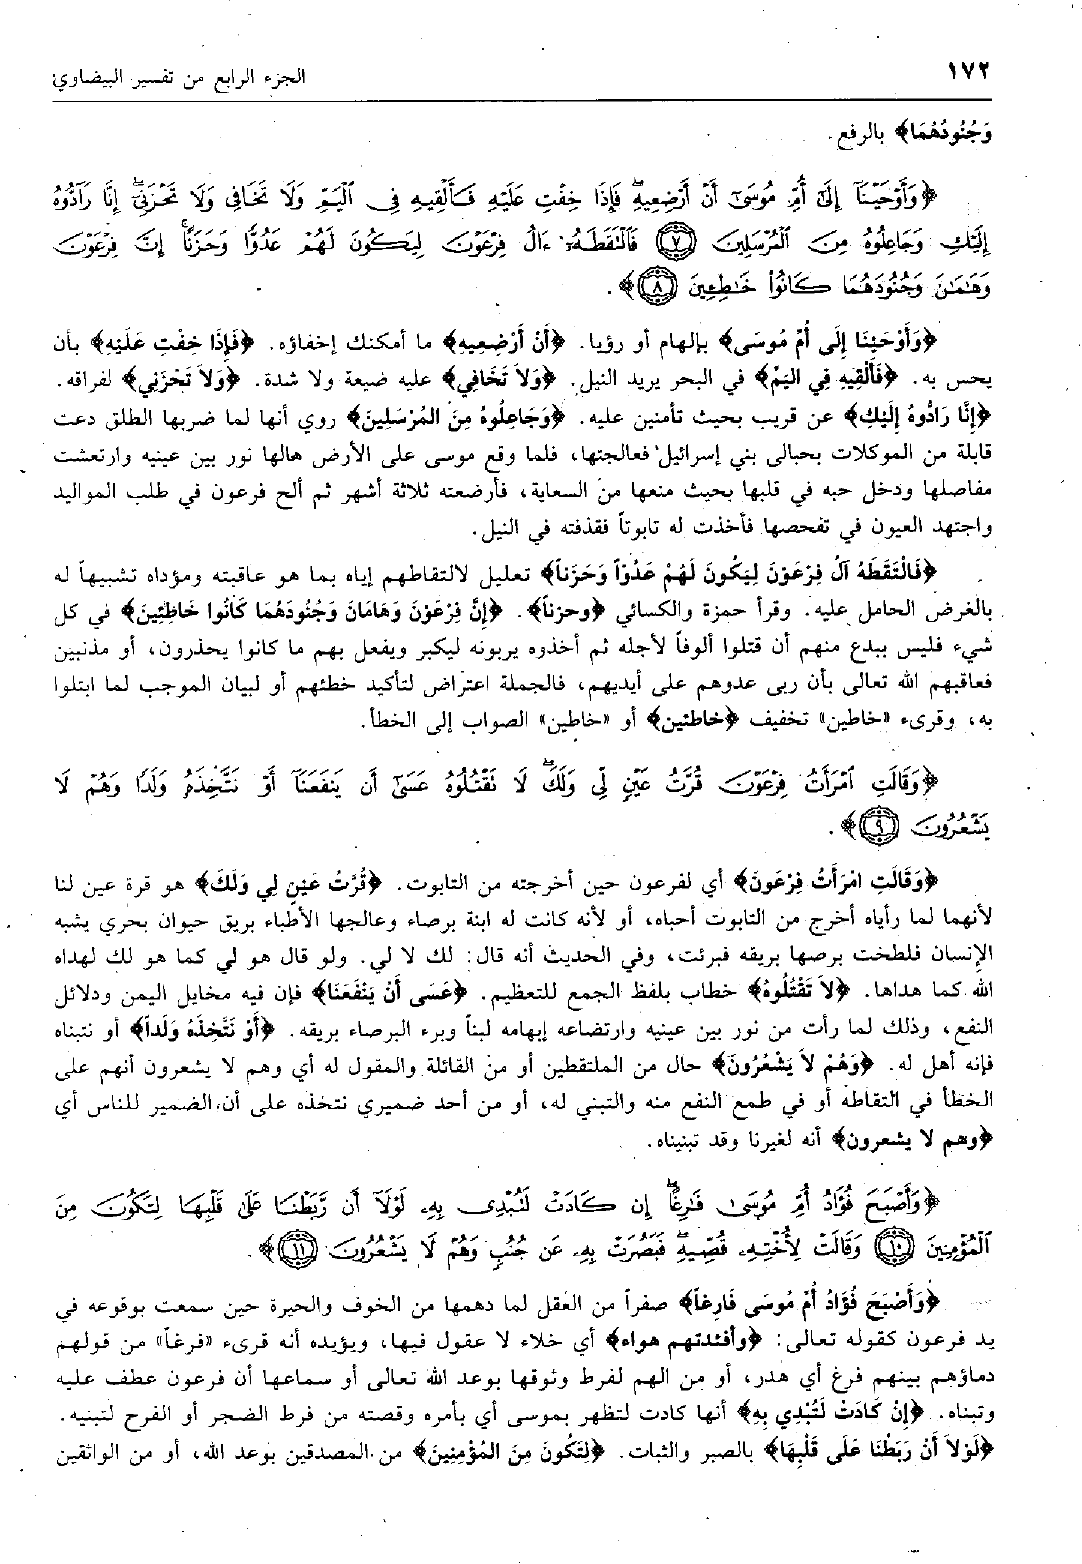 ١٧٢
الجزء الرابع من تفسير البيضاوي
وَجُنُودُهُمَا﴾ بالرفع.
﴿وَأَوْحَيْنَآ إِلَىٰٓ أُمِّ مُوسَىٰٓ أَنْ أَرْضِعِيهِۖ فَإِذَا خِفْتِ عَلَيْهِ فَأَلْقِيهِ فِى ٱلْيَمِّ وَلَا تَخَافِى وَلَا تَحْزَنِىٓۖ إِنَّا رَآدُّوهُ
إِلَيْكِ وَجَاعِلُوهُ مِنَ ٱلْمُرْسَلِينَ ﴿٧﴾ فَٱلْتَقَطَهُۥٓ ءَالُ فِرْعَوْنَ لِيَكُونَ لَهُمْ عَدُوًّا وَحَزَنًاۗ إِنَّ فِرْعَوْنَ
وَهَٰمَٰنَ وَجُنُودَهُمَا كَانُوا۟ خَٰطِـِٔينَ ﴿٨﴾﴾.
﴿وَأَوْحَيْنَا إِلَى أُمِّ مُوسَى﴾ بإلهام أو رؤيا. ﴿أَنْ أَرْضِعِيهِ﴾ ما أمكنك إخفاؤه. ﴿فَإِذَا خِفْتِ عَلَيْهِ﴾ بأن
يحس به. ﴿فَأَلْقِيهِ فِي اليَمِّ﴾ في البحر يريد النيل. ﴿وَلاَ تَخَافِي﴾ عليه ضيعة ولا شدة. ﴿وَلاَ تَحْزَنِي﴾ لفراقه.
﴿إِنَّا رَادُّوهُ إِلَيْكِ﴾ عن قريب بحيث تأمنين عليه. ﴿وَجَاعِلُوهُ مِنَ المُرْسَلِينَ﴾ روي أنها لما ضربها الطلق دعت
قابلة من الموكلات بحبالى بني إسرائيل فعالجتها، فلما وقع موسى على الأرض هالها نور بين عينيه وارتعشت
مفاصلها ودخل حبه في قلبها بحيث منعها من السعاية، فأرضعته ثلاثة أشهر ثم ألح فرعون في طلب المواليد
واجتهد العيون في تفحصها فأخذت له تابوتاً فقذفته في النيل.
﴿فَالْتَقَطَهُ آلُ فِرْعَوْنَ لِيَكُونَ لَهُمْ عَدُوّاً وَحَزَناً﴾ تعليل لالتقاطهم إياه بما هو عاقبته ومؤداه تشبيهاً له
بالغرض الحامل عليه. وقرأ حمزة والكسائي ﴿وحزناً﴾. ﴿إِنَّ فِرْعَوْنَ وَهَامَانَ وَجُنُودَهُمَا كَانُوا خَاطِئِينَ﴾ في كل
شيء فليس ببدع منهم أن قتلوا ألوفاً لأجله ثم أخذوه يربونه ليكبر ويفعل بهم ما كانوا يحذرون، أو مذنبين
فعاقبهم الله تعالى بأن ربى عدوهم على أيديهم، فالجملة اعتراض لتأكيد خطئهم أو لبيان الموجب لما ابتلوا
به، وقرىء «خاطين» تخفيف ﴿خاطئين﴾ أو «خاطين» الصواب إلى الخطأ.
﴿وَقَالَتِ ٱمْرَأَتُ فِرْعَوْنَ قُرَّتُ عَيْنٍ لِّى وَلَكَۖ لَا تَقْتُلُوهُ عَسَىٰٓ أَن يَنفَعَنَآ أَوْ نَتَّخِذَهُۥ وَلَدًا وَهُمْ لَا
يَشْعُرُونَ ﴿٩﴾﴾.
﴿وَقَالَتِ امْرَأَتُ فِرْعَونَ﴾ أي لفرعون حين أخرجته من التابوت. ﴿قُرَّتُ عَيْنٍ لِي وَلَكَ﴾ هو قرة عين لنا
لأنهما لما رأياه أخرج من التابوت أحباه، أو لأنه كانت له ابنة برصاء وعالجها الأطباء بريق حيوان بحري يشبه
الإنسان فلطخت برصها بريقه فبرئت، وفي الحديث أنه قال: لك لا لي. ولو قال هو لي كما هو لك لهداه
الله كما هداها. ﴿لاَ تَقْتُلُوهُ﴾ خطاب بلفظ الجمع للتعظيم. ﴿عَسَى أَنْ يَنْفَعَنَا﴾ فإن فيه مخايل اليمن ودلائل
النفع، وذلك لما رأت من نور بين عينيه وارتضاعه إبهامه لبناً وبرء البرصاء بريقه. ﴿أَوْ نَتَّخِذَهُ وَلَداً﴾ أو نتبناه
فإنه أهل له. ﴿وَهُمْ لاَ يَشْعُرُونَ﴾ حال من الملتقطين أو من القائلة والمقول له أي وهم لا يشعرون أنهم على
الخطأ في التقاطه أو في طمع النفع منه والتبني له، أو من أحد ضميري نتخذه على أن الضمير للناس أي
﴿وهم لا يشعرون﴾ أنه لغيرنا وقد تبنيناه.
﴿وَأَصْبَحَ فُؤَادُ أُمِّ مُوسَىٰ فَٰرِغًاۖ إِن كَادَتْ لَتُبْدِى بِهِۦ لَوْلَآ أَن رَّبَطْنَا عَلَىٰ قَلْبِهَا لِتَكُونَ مِنَ
ٱلْمُؤْمِنِينَ ﴿١٠﴾ وَقَالَتْ لِأُخْتِهِۦ قُصِّيهِۖ فَبَصُرَتْ بِهِۦ عَن جُنُبٍ وَهُمْ لَا يَشْعُرُونَ ﴿١١﴾﴾.
﴿وَأَصْبَحَ فُؤَادُ أُمِّ مُوسَى فَارِغاً﴾ صفراً من العقل لما دهمها من الخوف والحيرة حين سمعت بوقوعه في
يد فرعون كقوله تعالى: ﴿وأفئدتهم هواء﴾ أي خلاء لا عقول فيها، ويؤيده أنه قرىء «فرغاً» من قولهم
دماؤهم بينهم فرغ أي هدر، أو من الهم لفرط وثوقها بوعد الله تعالى أو سماعها أن فرعون عطف عليه
وتبناه. ﴿إِنْ كَادَتْ لَتُبْدِي بِهِ﴾ أنها كادت لتظهر بموسى أي بأمره وقصته من فرط الضجر أو الفرح لتبنيه.
﴿لَوْلاَ أَنْ رَبَطْنَا عَلَى قَلْبِهَا﴾ بالصبر والثبات. ﴿لِتَكُونَ مِنَ المُؤْمِنِينَ﴾ من المصدقين بوعد الله، أو من الواثقين